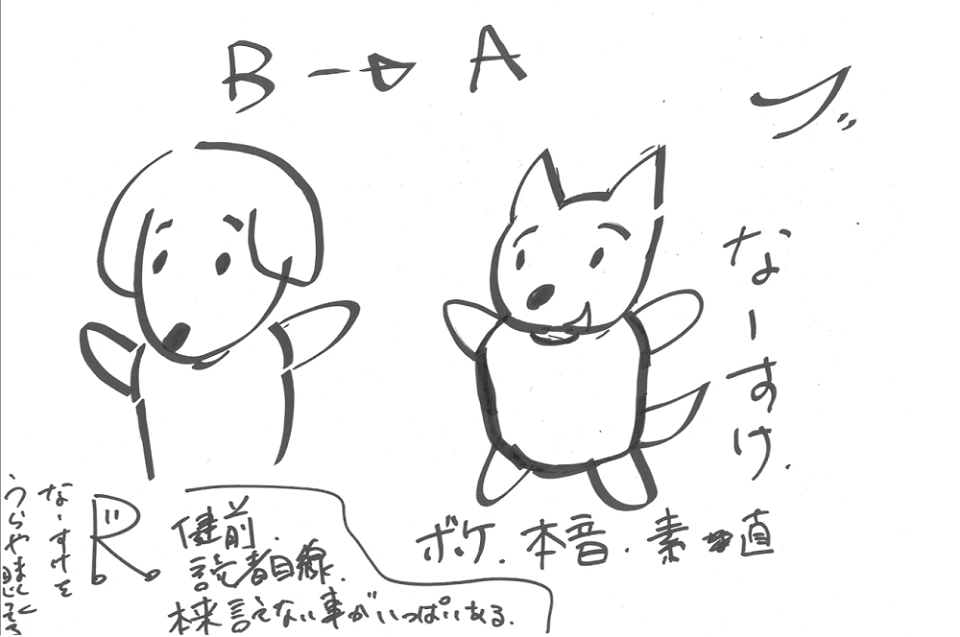 B → A
ブ
なーすけ.
ボケ. 本音. 素直
R
健前.
読者目線.
本来言えない事がいっぱいある.
なーすけを
うらやましく